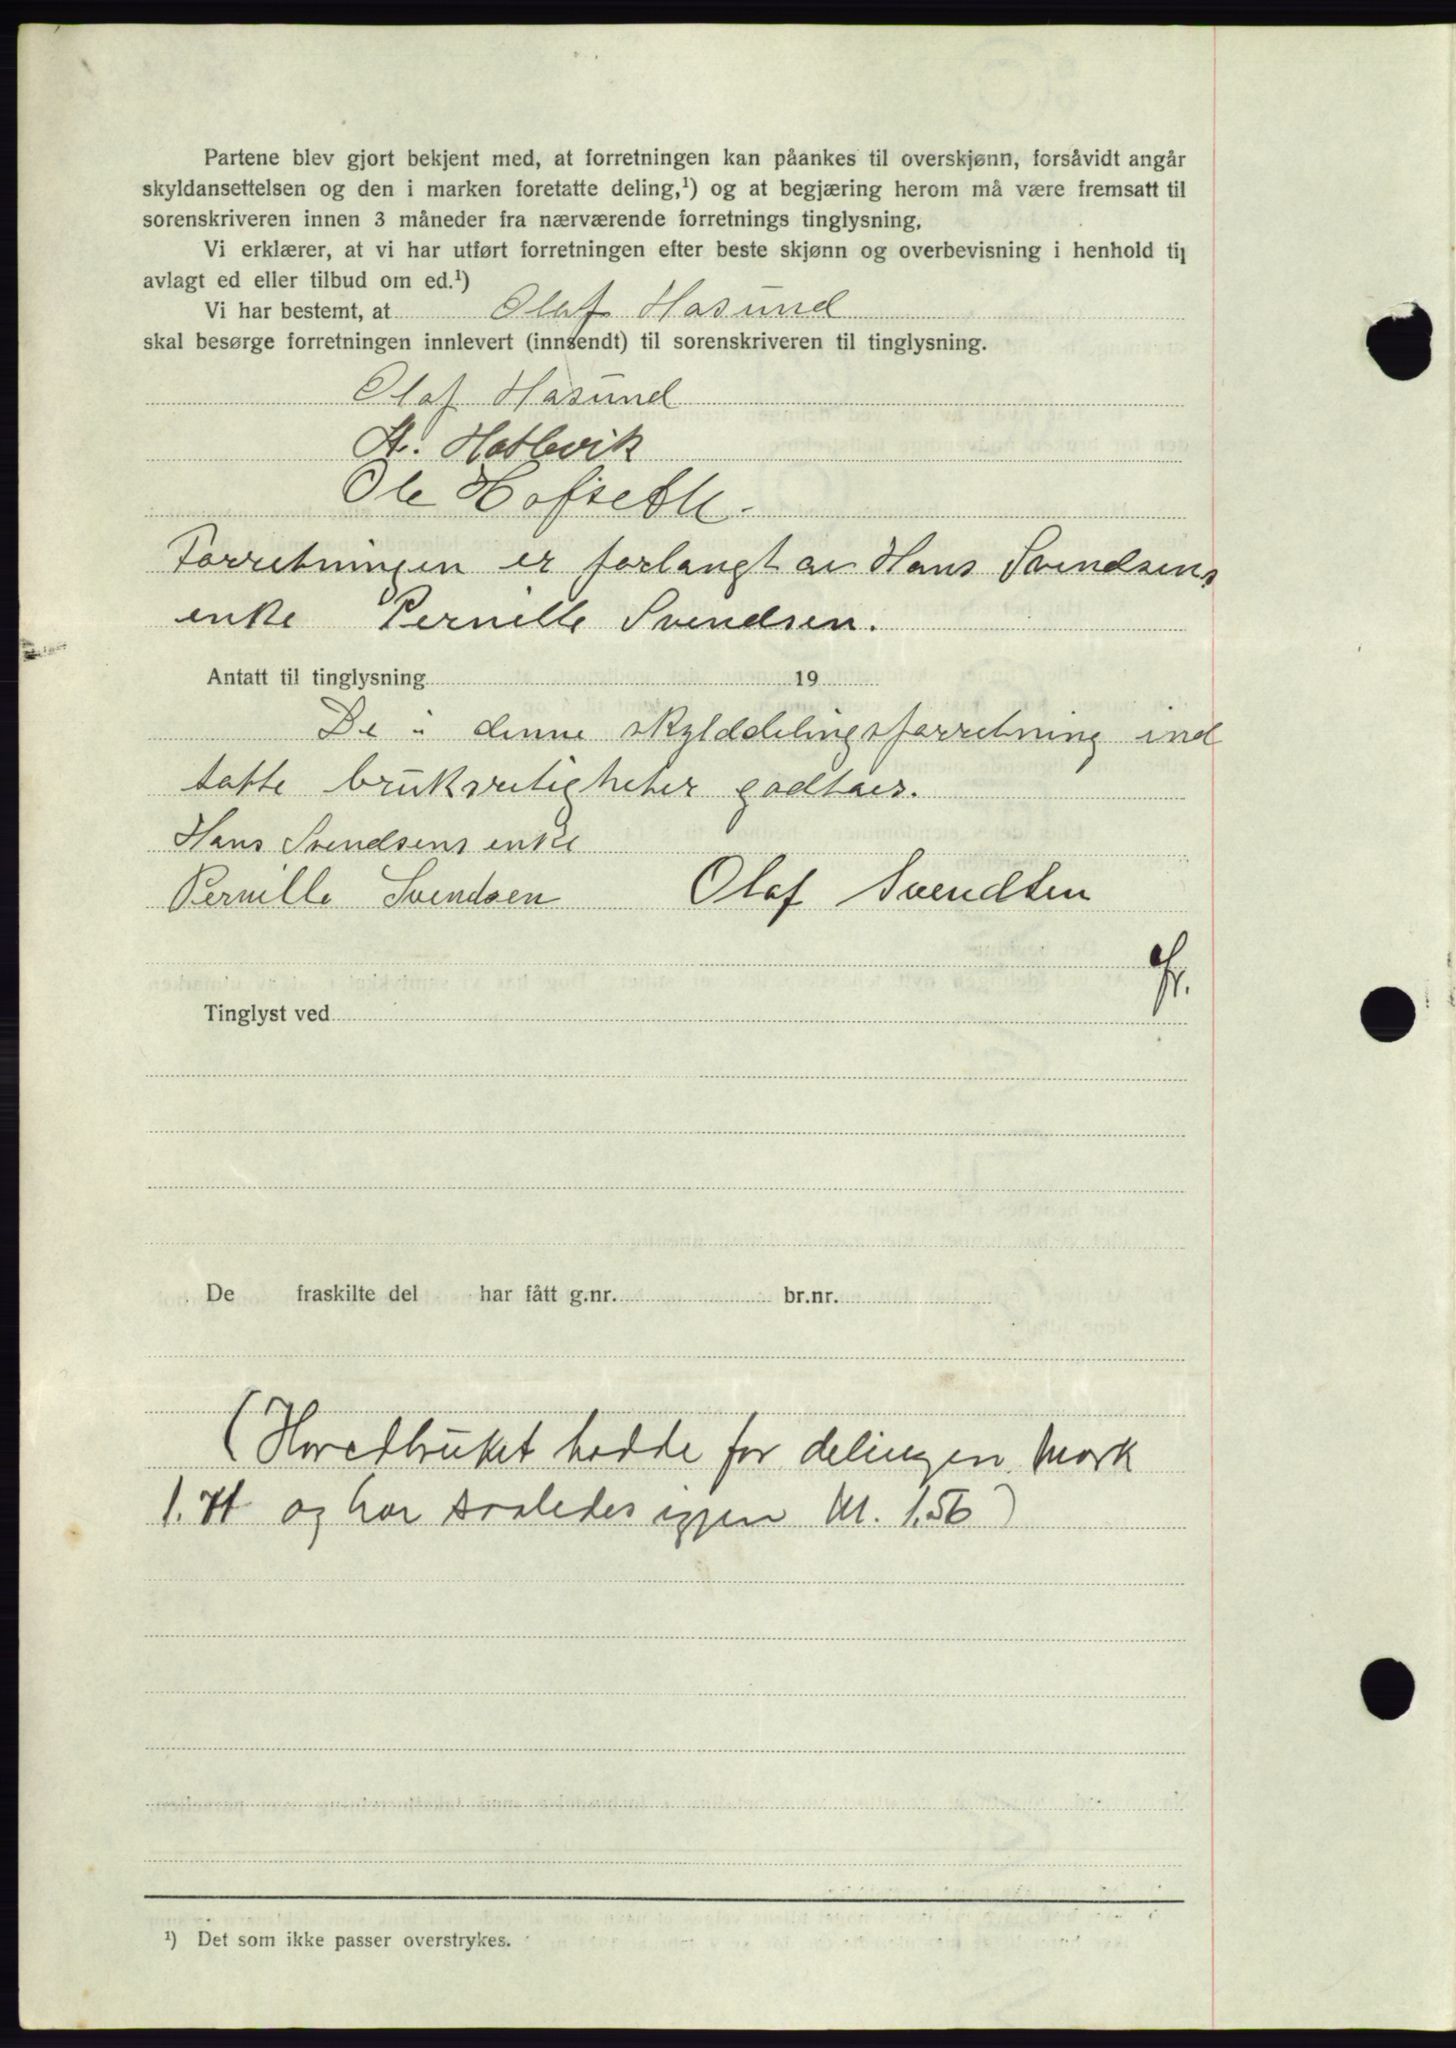 Partene blev gjort bekjent med, at forretningen kan påankes til overskjønn, forsåvidt angår
skyldansettelsen og den i marken foretatte deling,¹) og at begjæring herom må være fremsatt til
sorenskriveren innen 3 måneder fra nærværende forretnings tinglysning.
Vi erklærer, at vi har utført forretningen efter beste skjønn og overbevisning i henhold til
avlagt ed eller tilbud om ed.¹)
Vi har bestemt, at Olaf Hasund
skal besørge forretningen innlevert (innsendt) til sorenskriveren til tinglysning.
Olaf Hasund
A. Hatlevik
Ole Hofseth.
Forretningen er forlangt av Hans Svendsens
enke Pernille Svendsen.
Antatt til tinglysning 19
De i denne skylddelingsforretning ind
tatte bruksretigheter godtaes.
Hans Svendsens enke
Pernille Svendsen Olaf Svendsen
Tinglyst ved
De fraskilte del har fått g.nr. br.nr.
(Hovedbruket hadde før delingen Mark
1.71 og har saaledes igjen M. 1.56)
¹) Det som ikke passer overstrykes.